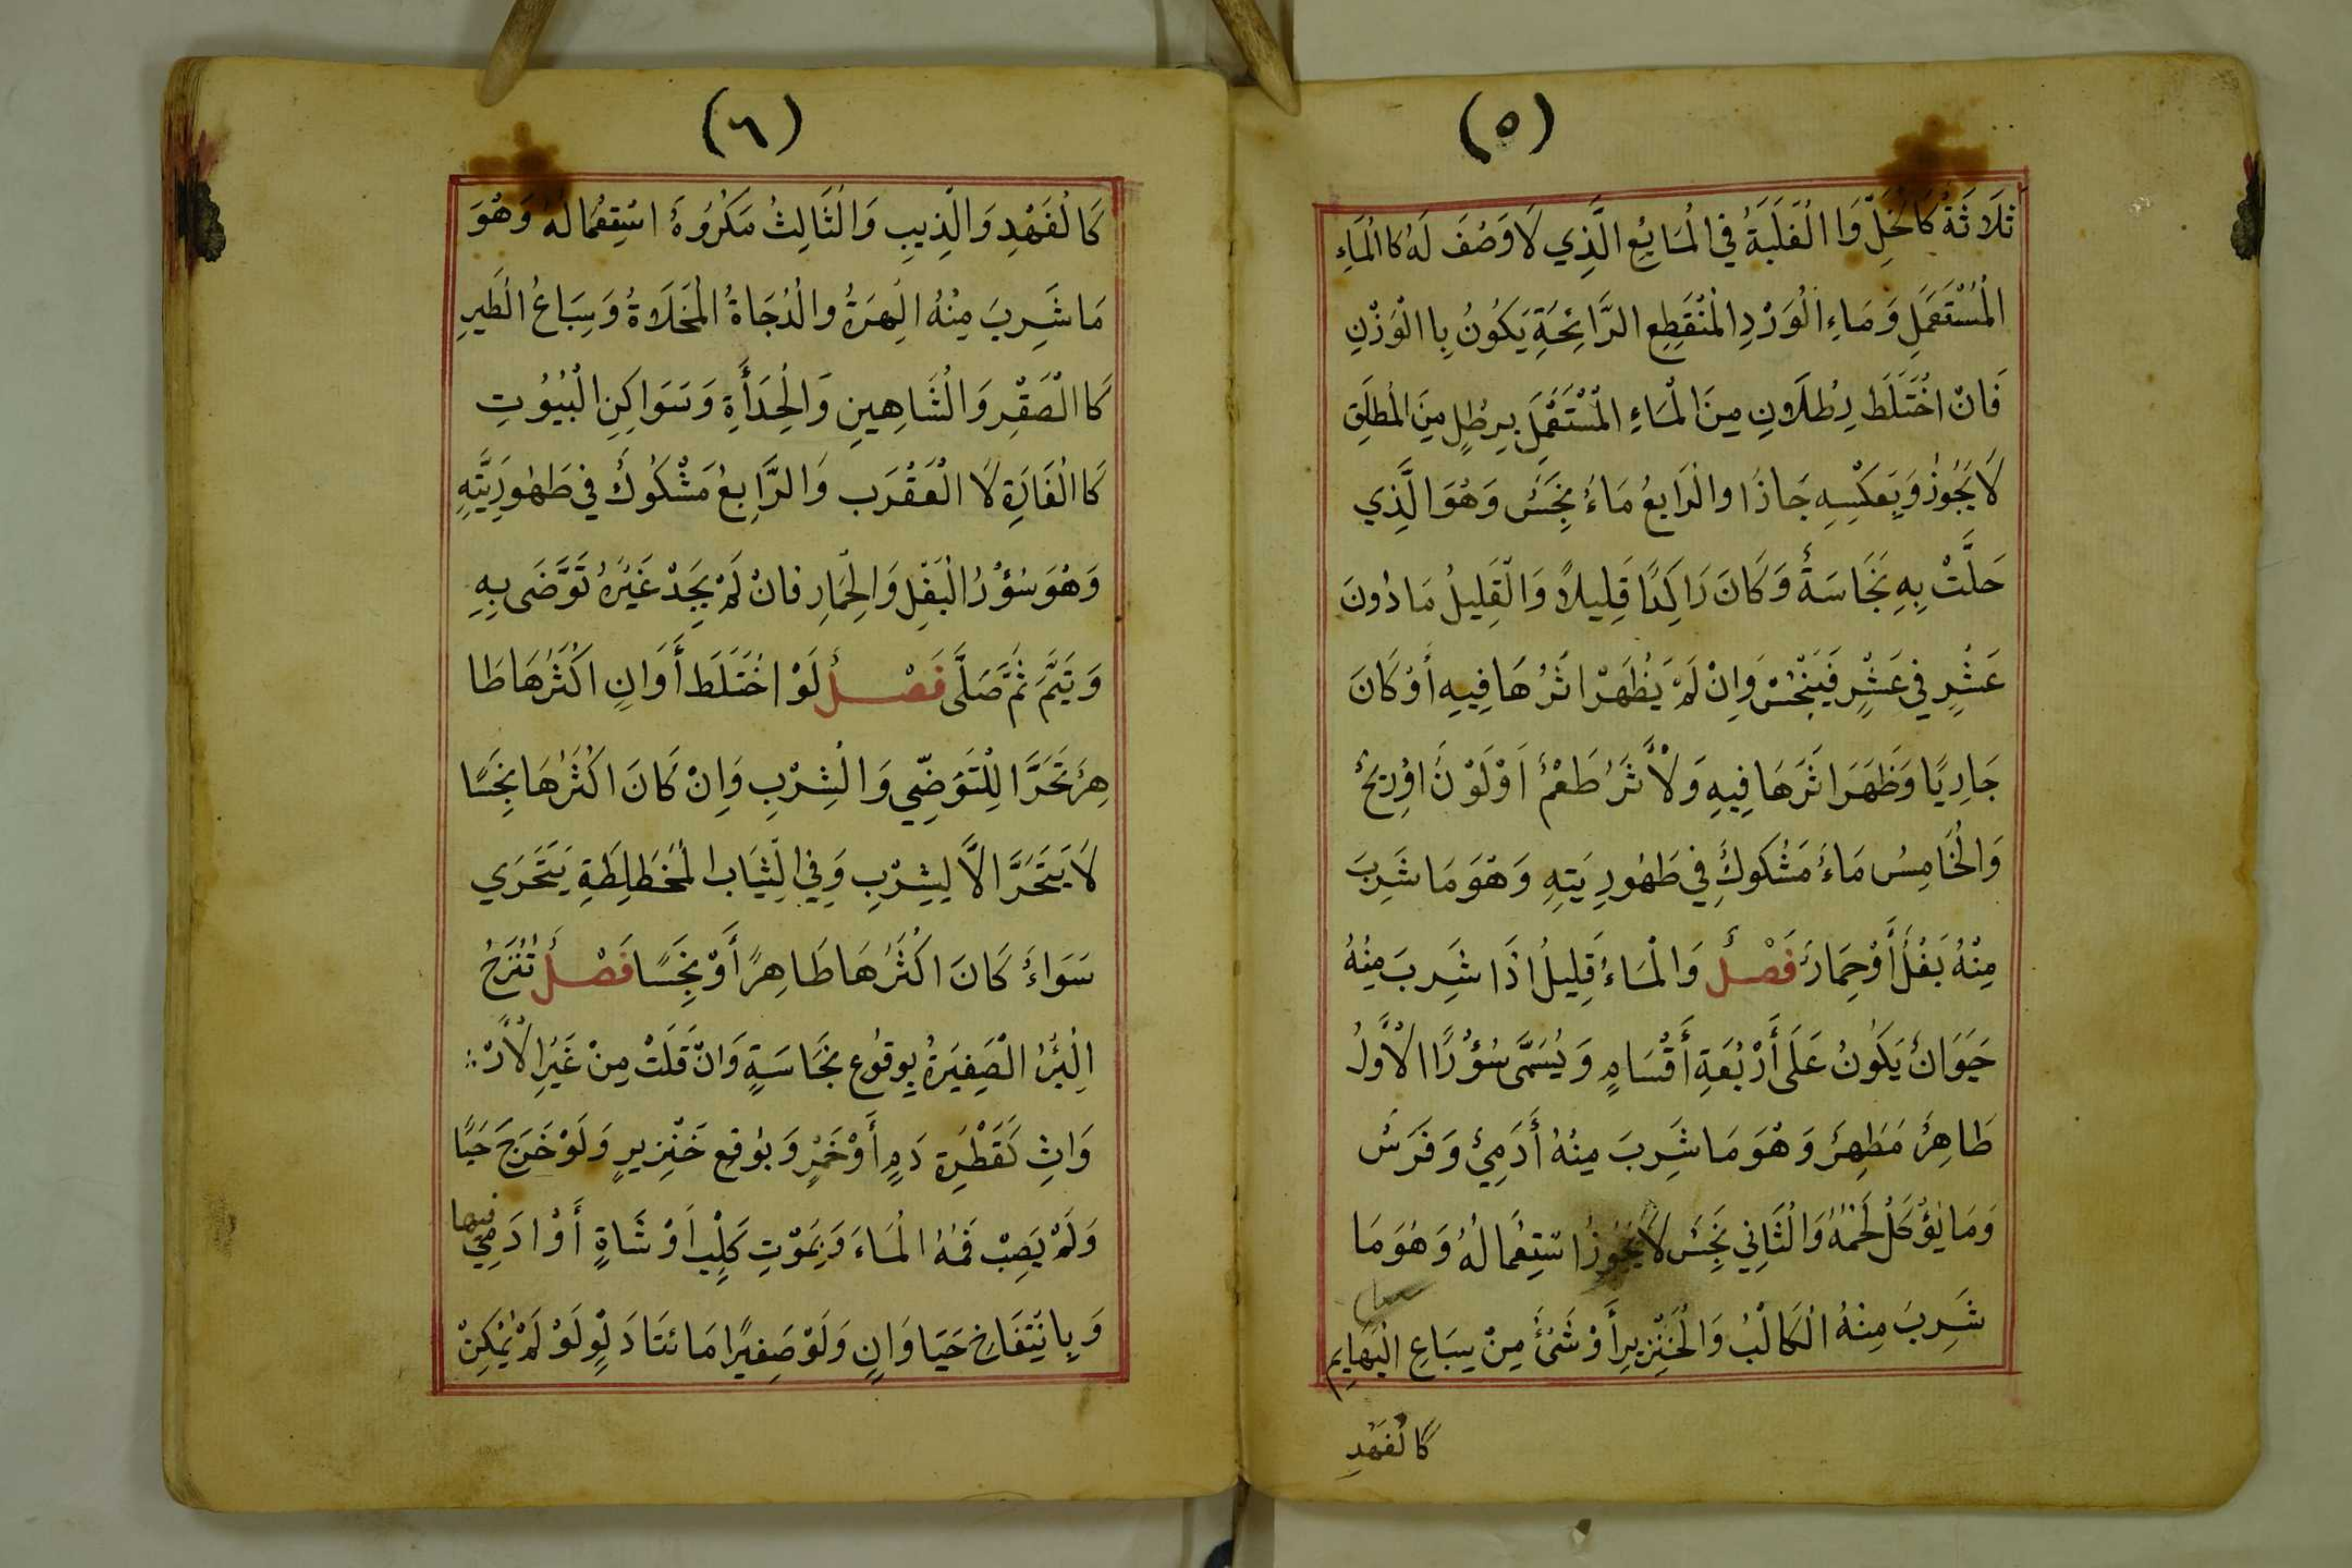 (٥)
ثَلَاثَةُ كَالْخَلِّ وَا الْغَلَبَةُ فِي الْمَايِعِ الَّذِي لَا وَصْفَ لَهُ كَا الْمَاءِ
الْمُسْتَعْمَلِ وَمَاءِ الْوَرْدِ الْمُنْقَطِعِ الرَّائِحَةِ يَكُونُ بِا الْوَزْنِ
فَانْ اخْتَلَطَ رِطْلَاونِ مِنَ الْمَاءِ الْمُسْتَعْمَلِ بِرِطْلٍ مِنَ الْمُطْلَقِ
لَا يَجُوزُ وَبِعَكْسِهِ جَازَا وَالْرَابِعُ مَاءُ نَجِسٌ وَهُوَ الَّذِي
حَلَّتْ بِهِ نَجَاسَةٌ وَكَانَ رَاكِدًا قَلِيلًا وَالْقَلِيلُ مَا دُونَ
عَشْرٍ فِي عَشْرٍ فَيَنْجُسُ وَاِنْ لَمْ يَظْهَرْ اثَرُهَا فِيهِ أَوْ كَانَ
جَارِيًا وَظَهَرَ اثَرُهَا فِيهِ وَلْأَثَرُ طَعْمٌ اَوْ لَوْنٌ اوْرِيحٌ
وَالْخَامِسُ مَاءُ مَشْكُوكٌ فِي طَهُورِيَتِهِ وَهُوَ مَا شَرِبَ
مِنْهُ بَغْلٌ أَوْ حِمَارٌ فَصْلٌ وَالْمَاءُ قَلِيلُ اذَا شَرِبَ مِنْهُ
حَيَوَانٌ يَكُونُ عَلَى أَرْبَعَةِ أَقْسَامٍ وَيُسَمَّى سُؤْرًا الْأَوَّلُ
طَاهِرٌ مَطَهِرٌ وَهُوَ مَا شَرِبَ مِنْهُ أَدَمِيٌ وَفَرَسٌ
وَمَا يُؤْكَلُ لَحْمُهُ وَالْثَانِي نَجِسٌ لَا يَجُوزُ اسْتِعْمَالُهُ وَهُوَ مَا
شَرِبَ مِنْهُ الْكَالْبُ وَالْخِنْزِيرِ أَوْ شَئٌ مِنْ سِبَاعِ الْبَهَايِمِ
كَالْفَهْدِ
(٦)
كَالْفَهْدِ وَالْذِيبِ وَالْثَالِثُ مَكْرُوهُ اسْتِعْمَالهُ وَهُوَ
مَا شَرِبَ مِنْهُ الْهِرَةُ وَالْدُجَاةُ الْمُخَلَاةُ وَسِبَاعُ الْطَيرِ
كَا الْصَقْرِ وَالْشَاهِينِ وَالْحِدَأَةِ وَسَوَاكِنِ الْبُيُوتِ
كَا الْفَارَةِ لَا الْعَقْرَب وَالرَّابِعُ مَشْكُوكٌ فِي طَهُورِيَّتِهِ
وَهُوَ سُؤْرُ الْبَغْلِ وَالْحِمَارِ فَانْ لَمْ يَجِدْ غَيْرَهُ تَوَّضَى بِهِ
وَتَيَمَّ ثُمَّ صَلَّى فَصْلٌ لَوْ اخْتَلَطَ أَوَانِ اكْثَرُهَا طَا
هِرٌ تَحَرَّا لِلْتَوَضِّي وَالْشِرْبِ وَاِنْ كَانَ اكْثَرُهَا نَجِسًا
لَا يَتَحَرَّا الَّا لِشِرْبِ وَفِي الْثِيَابِ الْمُخْطَلِطَةِ يَتَحَرَي
سَوَاءٌ كَانَ اكْثَرُهَا طَاهِرً أَوْ نَجِسًا فَصْلٌ تُنْزَحُ
الْبِئْرُ الْصَغِيرَةُ بِوقُوعِ نَجَاسَةٍ وَانْ قَلَتْ مِنْ غَيْرِ الْأَرْ
وَاثِ كَقَطْرِةِ دَمٍ أَوْ خَمْرٍ وَبِوُقِعِ خَنْزِيرٍ وَلَوْ خَرَجَ حَيًا
وَلَمْ يَصِبْ فَمَهُ الْمَاءَ وَبِمَوْتِ كَلْبٍ اَوْ شَاةٍ أَوْ ادَمِيٍ فيها
وَبِانْتِفَاخِ حَيَاوَانٍ وَلَوْ صَغِيرًا مَائتَا دَلْوٍ لَوْ لَمْ يُمْكِنْ